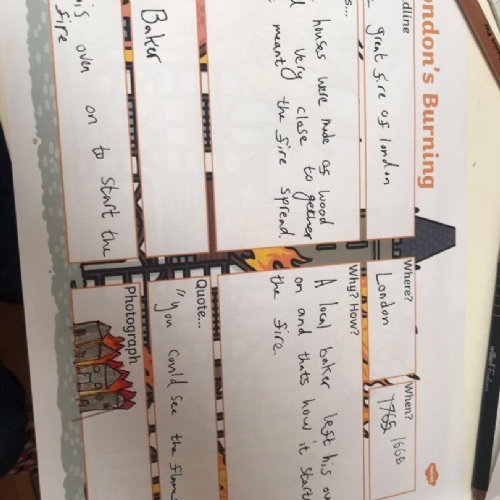 ondon's Burning
adline
great fire of london
houses were made of wood
very close together
meant the fire spread.
Baker
his oven on to start the
fire
Where?
London
When?
1666
Why? How?
A local baker left his ov
on and thats how it start
the fire.
Quote...
"you could see the flame
Photograph